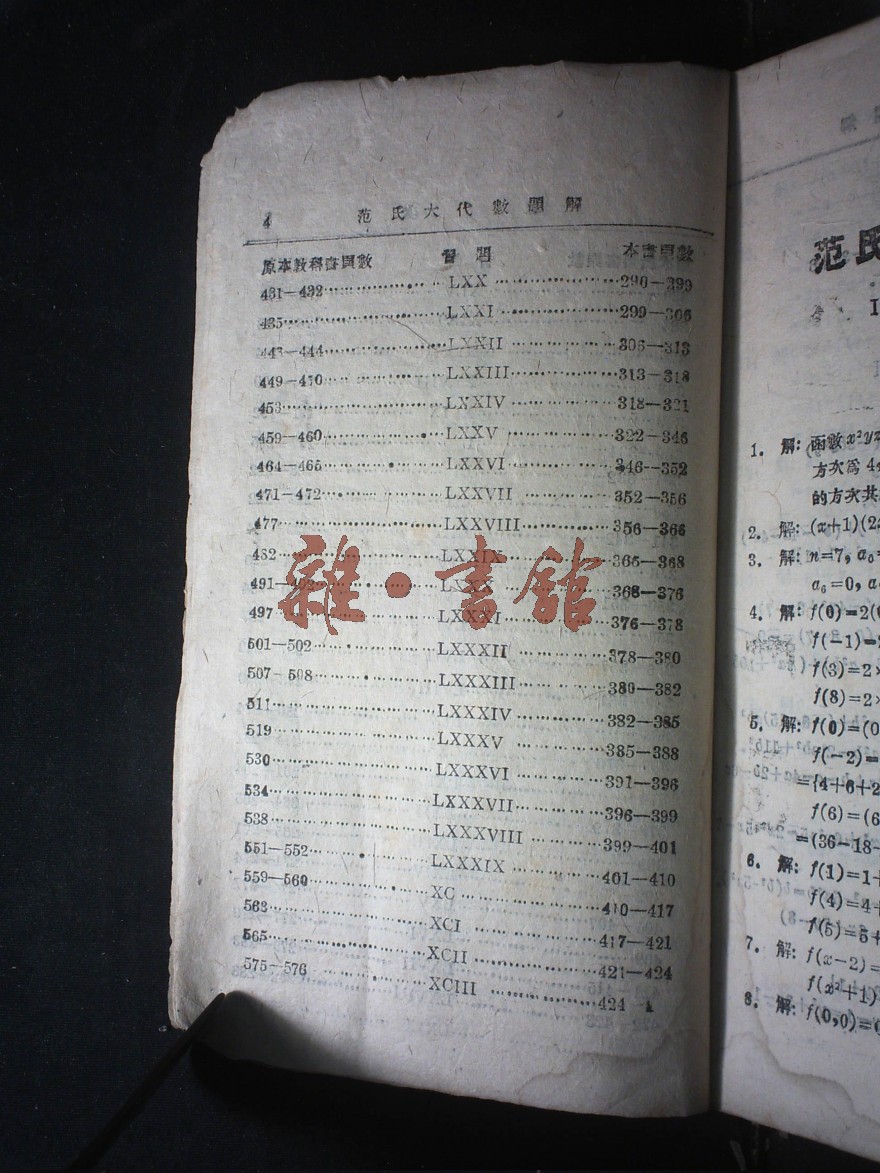 4 范氏大代數題解
原本教科書頁數 習題 本書頁數
431—432 LXX 290—399
435 LXXI 299—306
443—444 LXXII 306—313
449—450 LXXIII 313—318
453 LXXIV 318—321
459—460 LXXV 322—346
464—465 LXXVI 346—352
471—472 LXXVII 352—356
477 LXXVIII 356—366
482 LXXIX 366—368
491—492 LXXX 368—376
497 LXXXI 376—378
501—502 LXXXII 378—380
507—508 LXXXIII 380—382
511 LXXXIV 382—385
519 LXXXV 385—388
530 LXXXVI 391—396
534 LXXXVII 396—399
538 LXXXVIII 399—401
551—552 LXXXIX 401—410
559—560 XC 410—417
563 XCI 417—421
565 XCII 421—424
575—576 XCIII 424
雜·書館
范氏
1. 解: 函數 x²yz
方次為 4
的方次共
2. 解: (x+1)(2
3. 解: n=7, a₀=
a₆=0, a
4. 解: f(0)=2(
f(−1)=
f(3)=2×
f(8)=2×
5. 解: f(0)=(0
f(−2)=
={4+6+2
f(6)=(6
=(36−18−
6. 解: f(1)=1+
f(4)=4+
f(5)=5+
7. 解: f(x−2)=
f(x²+1)
8. 解: f(0,0)=